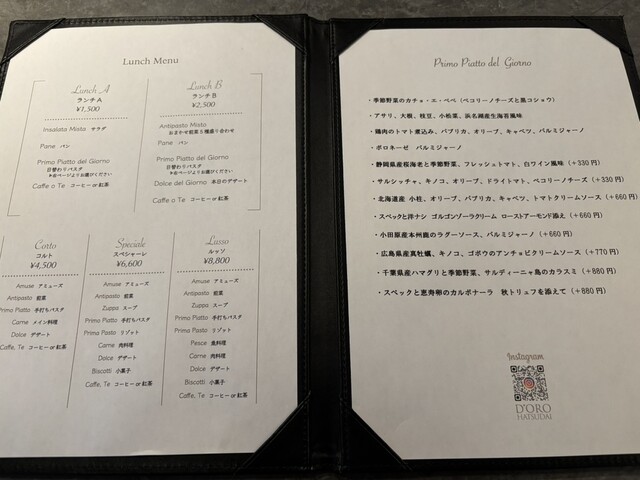 Lunch Menu
Lunch A
ランチA
¥1,500
Insalata Mista サラダ
Pane パン
Primo Piatto del Giorno
日替わりパスタ
▷右ページよりお選びください
Caffe o Te コーヒー or 紅茶
Lunch B
ランチB
¥2,500
Antipasto Misto
おまかせ前菜5種盛り合わせ
Pane パン
Primo Piatto del Giorno
日替わりパスタ
▷右ページよりお選びください
Dolce del Giorno 本日のデザート
Caffe o Te コーヒー or 紅茶
Corto
コルト
¥4,500
Amuse アミューズ
Antipasto 前菜
Primo Piatto 手打ちパスタ
Carne メイン料理
Dolce デザート
Caffe, Te コーヒー or 紅茶
Speciale
スペシャーレ
¥6,600
Amuse アミューズ
Antipasto 前菜
Zuppa スープ
Primo Piatto 手打ちパスタ
Primo Pasto リゾット
Carne 肉料理
Dolce デザート
Biscotti 小菓子
Caffe, Te コーヒー or 紅茶
Lusso
ルッソ
¥8,800
Amuse アミューズ
Antipasto 前菜
Zuppa スープ
Primo Piatto 手打ちパスタ
Primo Pasto リゾット
Pesce 魚料理
Carne 肉料理
Dolce デザート
Biscotti 小菓子
Caffe, Te コーヒー or 紅茶
Primo Piatto del Giorno
・季節野菜のカチョ・エ・ペペ（ペコリーノチーズと黒コショウ）
・アサリ、大根、枝豆、小松菜、浜名湖産生海苔風味
・鶏肉のトマト煮込み、パプリカ、オリーブ、キャベツ、パルミジャーノ
・ボロネーゼ パルミジャーノ
・静岡県産桜海老と季節野菜、フレッシュトマト、白ワイン風味（+330円）
・サルシッチャ、キノコ、オリーブ、ドライトマト、ペコリーノチーズ（+330円）
・北海道産 小柱、オリーブ、パプリカ、キャベツ、トマトクリームソース（+660円）
・スペックと洋ナシ ゴルゴンゾーラクリーム ローストアーモンド添え（+660円）
・小田原産本州鹿のラグーソース、パルミジャーノ（+660円）
・広島県産真牡蠣、キノコ、ゴボウのアンチョビクリームソース（+770円）
・千葉県産ハマグリと季節野菜、サルディーニャ島のカラスミ（+880円）
・スペックと恵寿卵のカルボナーラ 秋トリュフを添えて（+880円）
Instagram
D'ORO
HATSUDAI